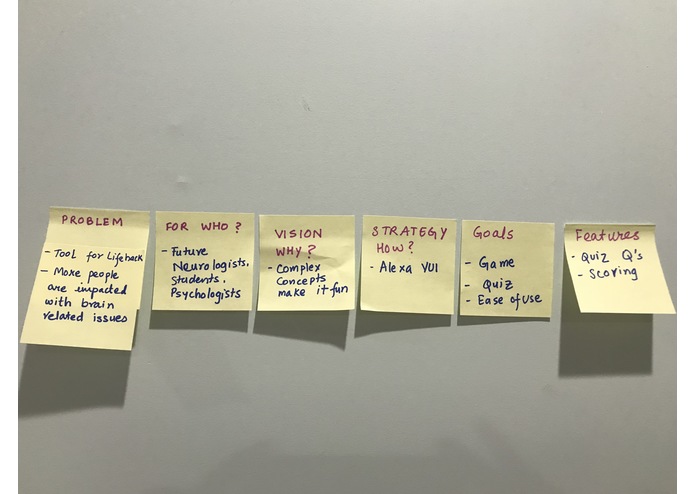 PROBLEM
- Tool for Lifehack
- More people
are impacted
with brain
related issues
FOR WHO?
- Future
Neurologists.
Students.
Psychologists
VISION
WHY?
- Complex
Concepts
make it fun
STRATEGY
HOW?
- Alexa VUI
Goals
- Game
- Quiz
- Ease of use
Features
- Quiz Q's
- Scoring